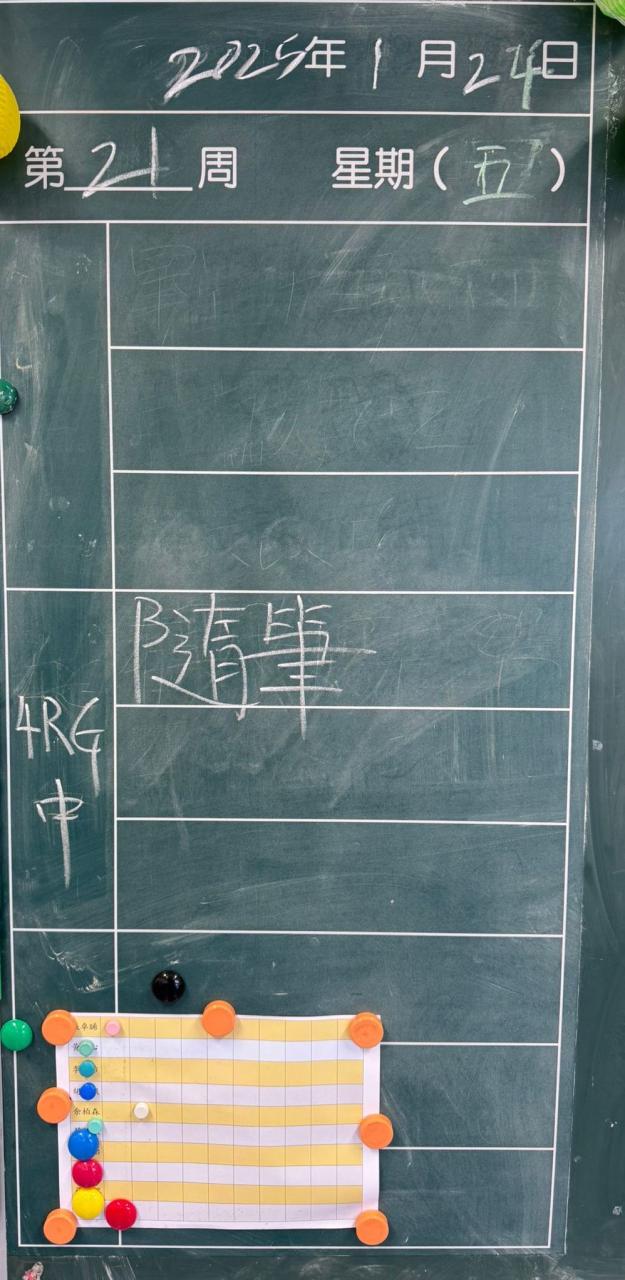 2025年1月24日
第21周 星期(五)
隨筆
4RG
中
余柏森